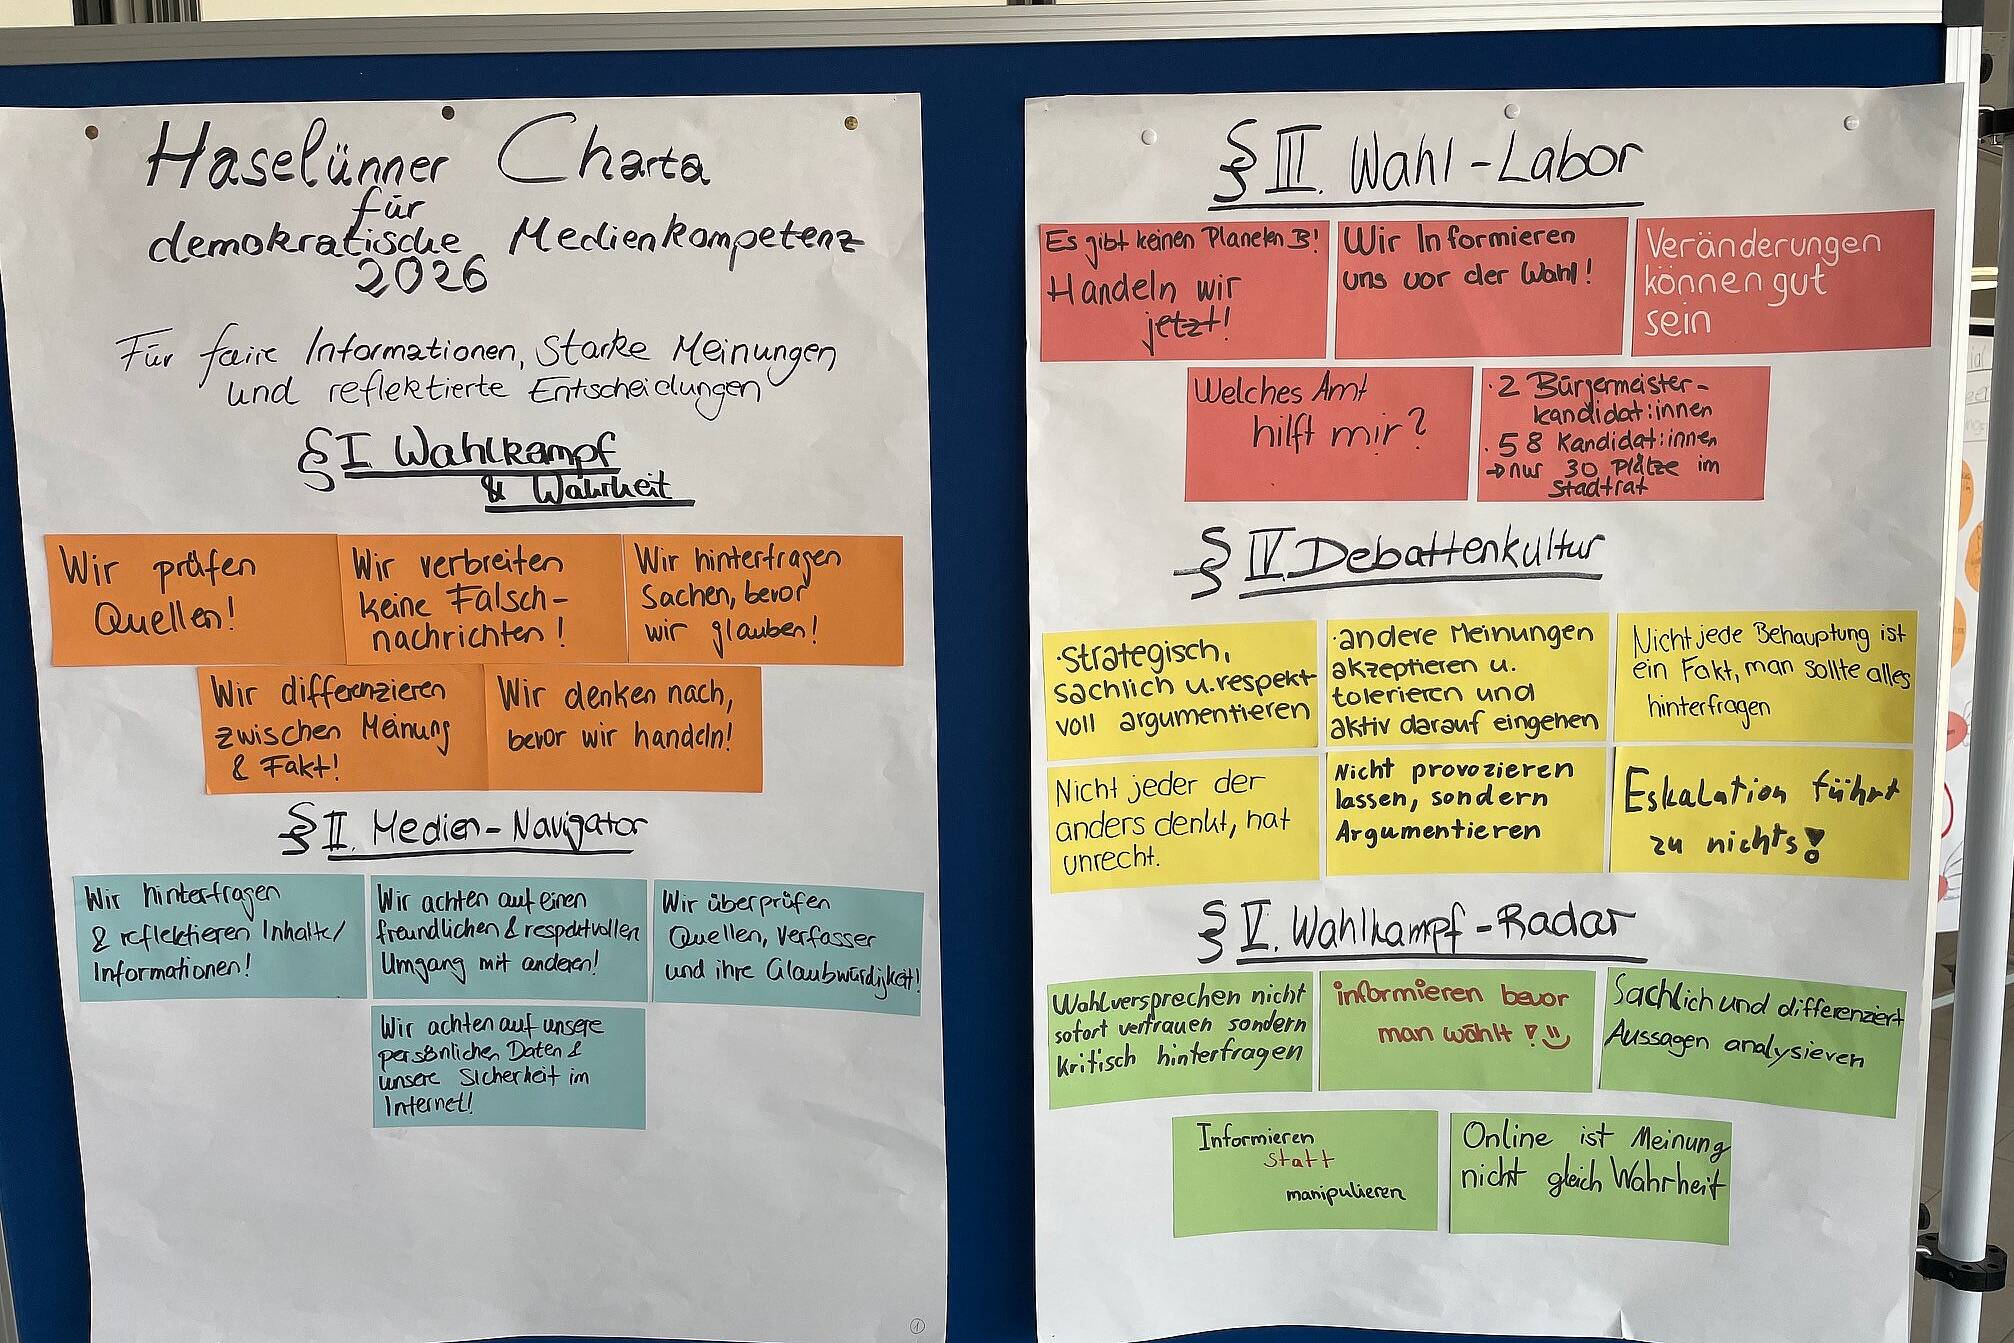 Haselünner Charta
für
demokratische Medienkompetenz
2026
Für faire Informationen, starke Meinungen
und reflektierte Entscheidungen
§ I Wahlkampf
& Wahrheit
Wir prüfen
Quellen!
Wir verbreiten
keine Falsch-
nachrichten!
Wir hinterfragen
Sachen, bevor
wir glauben!
Wir differenzieren
zwischen Meinung
& Fakt!
Wir denken nach,
bevor wir handeln!
§ II. Medien-Navigator
Wir hinterfragen
& reflektieren Inhalte/
Informationen!
Wir achten auf einen
freundlichen & respektvollen
Umgang mit anderen!
Wir überprüfen
Quellen, Verfasser
und ihre Glaubwürdigkeit!
Wir achten auf unsere
persönlichen Daten &
unsere Sicherheit im
Internet!
1
§ III. Wahl-Labor
Es gibt keinen Planeten B!
Handeln wir
jetzt!
Wir Informieren
uns vor der Wahl!
Veränderungen
können gut
sein
Welches Amt
hilft mir?
· 2 Bürgermeister-
kandidat:innen
· 58 Kandidat:innen
→ nur 30 Plätze im
Stadtrat
§ IV. Debattenkultur
·strategisch,
sachlich u. respekt
voll argumentieren
·andere Meinungen
akzeptieren u.
tolerieren und
aktiv darauf eingehen
Nicht jede Behauptung ist
ein Fakt, man sollte alles
hinterfragen
Nicht jeder der
anders denkt, hat
unrecht.
Nicht provozieren
lassen, sondern
Argumentieren
Eskalation führt
zu nichts!
§ V. Wahlkampf-Radar
Wahlversprechen nicht
sofort vertrauen sondern
kritisch hinterfragen
informieren bevor
man wählt !
Sachlich und differenziert
Aussagen analysieren
Informieren
statt
manipulieren
Online ist Meinung
nicht gleich Wahrheit